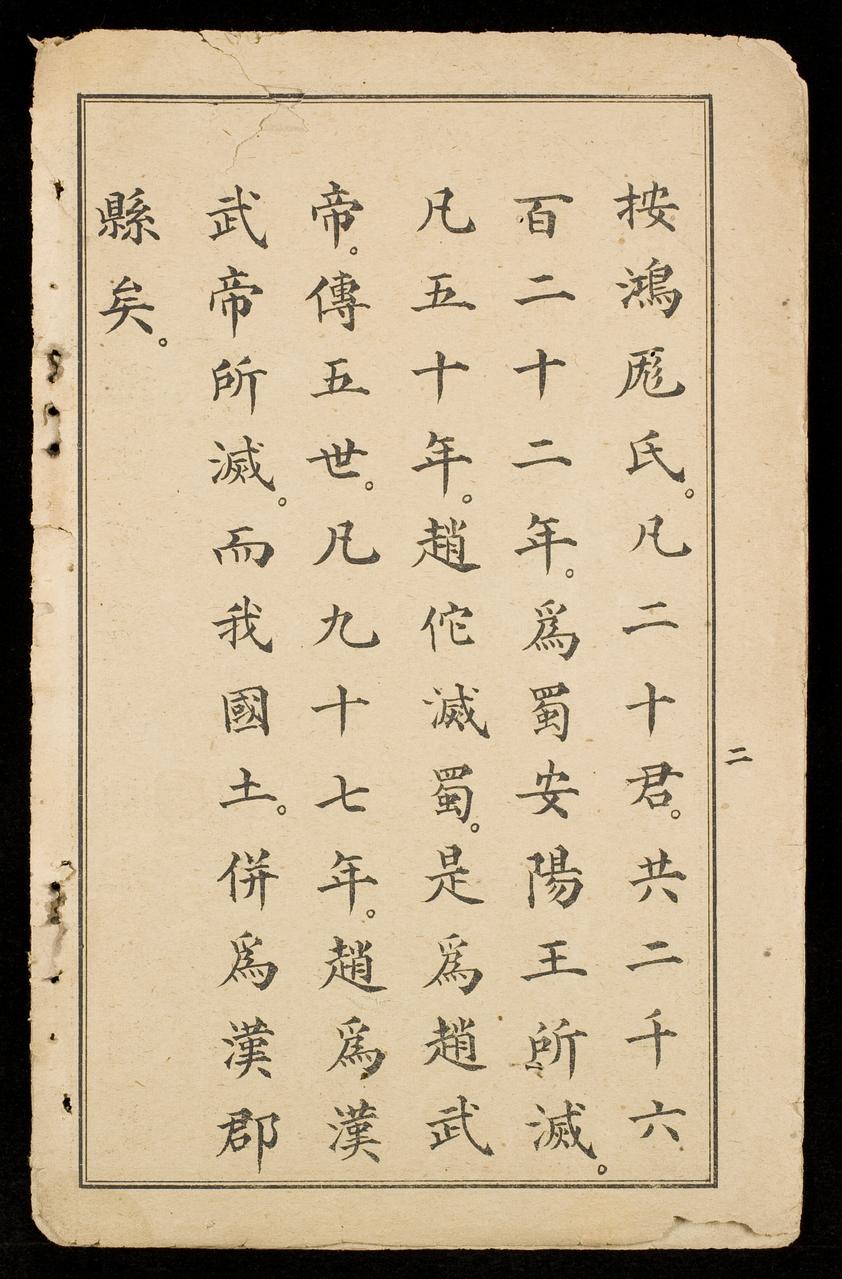 按鴻厖氏。凡二十君。共二千六
百二十二年。爲蜀安陽王所滅。
凡五十年。趙佗滅蜀。是爲趙武
帝。傳五世。凡九十七年。趙爲漢
武帝所滅。而我國土。併爲漢郡
縣矣。
二